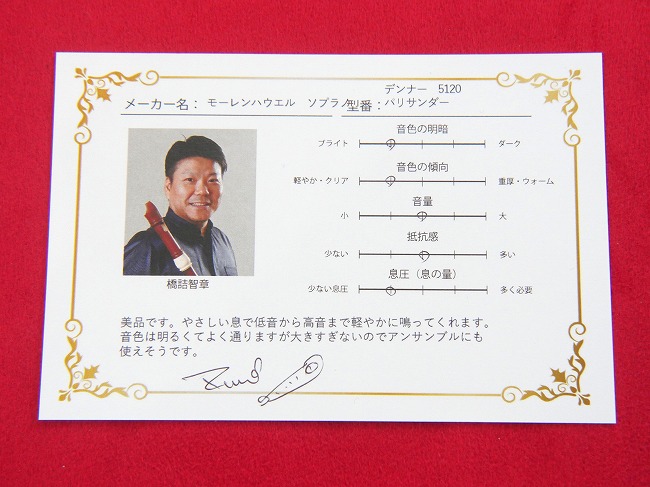 デンナー 5120
メーカー名： モーレンハウエル ソプラノ 型番： パリサンダー
音色の明暗
ブライト ダーク
音色の傾向
軽やか・クリア 重厚・ウォーム
音量
小 大
抵抗感
少ない 多い
息圧（息の量）
少ない息圧 多く必要
橋詰智章
美品です。やさしい息で低音から高音まで軽やかに鳴ってくれます。
音色は明るくてよく通りますが大きすぎないのでアンサンブルにも
使えそうです。